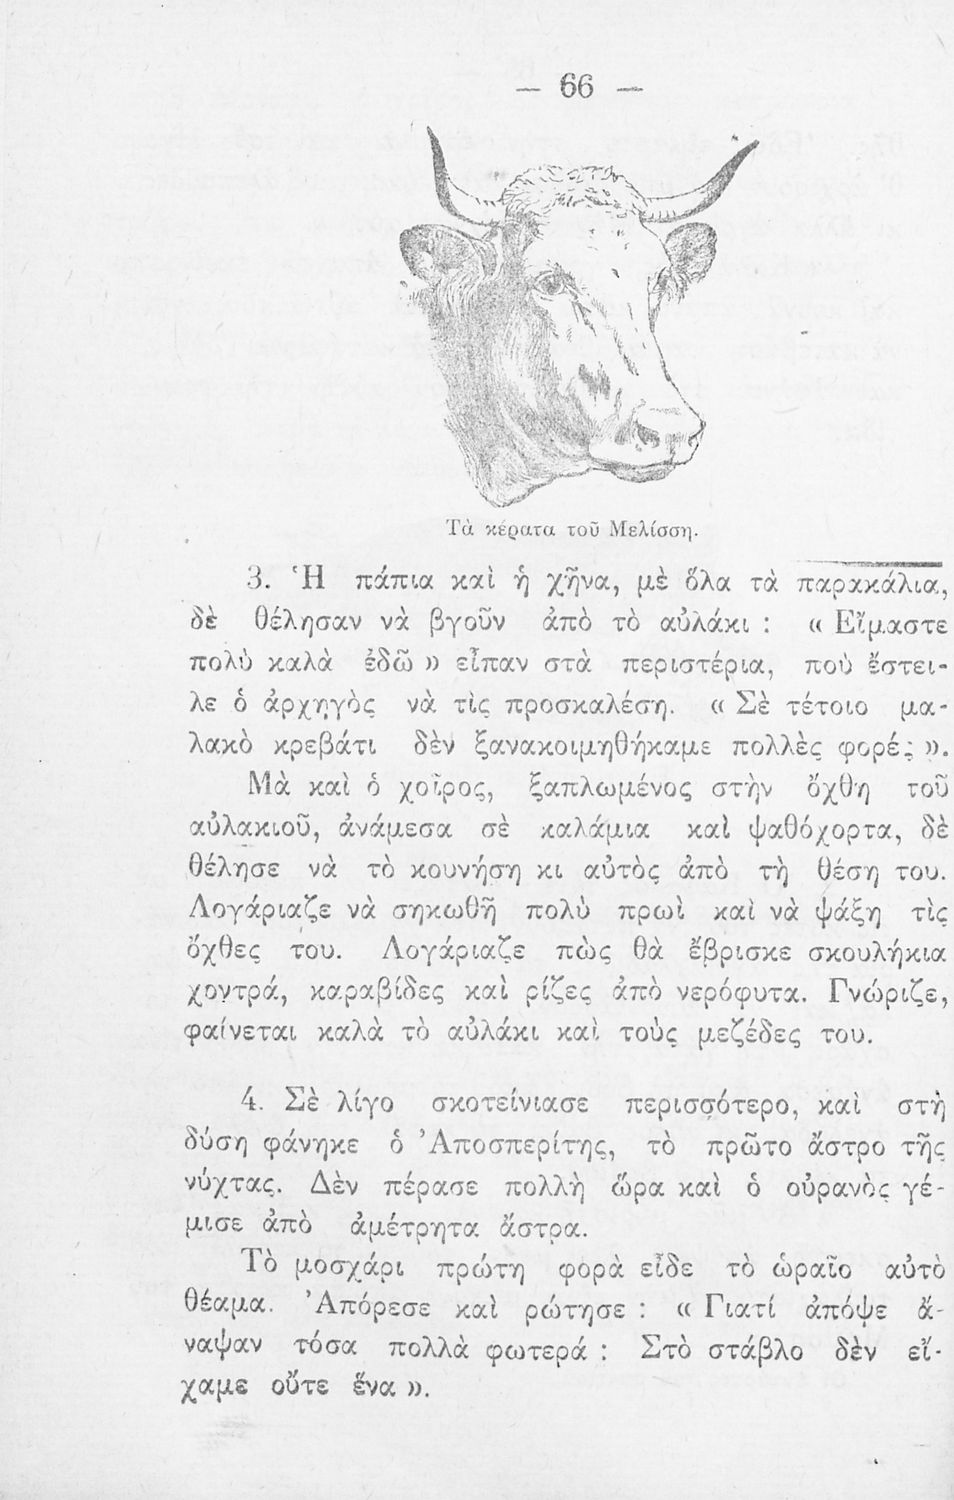 — 66 —
Τὰ κέρατα τοῦ Μελίσση.
3. Ἡ πάπια καὶ ἡ χῆνα, μὲ ὅλα τὰ παρακάλια,
δὲ θέλησαν νὰ βγοῦν ἀπὸ τὸ αὐλάκι : « Εἴμαστε
πολὺ καλὰ ἐδῶ » εἶπαν στὰ περιστέρια, ποὺ ἔστει-
λε ὁ ἀρχηγὸς νὰ τὶς προσκαλέση. « Σὲ τέτοιο μα-
λακὸ κρεβάτι δὲν ξανακοιμηθήκαμε πολλὲς φορές ».
Μὰ καὶ ὁ χοῖρος, ξαπλωμένος στὴν ὄχθη τοῦ
αὐλακιοῦ, ἀνάμεσα σὲ καλάμια καὶ ψαθόχορτα, δὲ
θέλησε νὰ τὸ κουνήση κι αὐτὸς ἀπὸ τὴ θέση του.
Λογάριαζε νὰ σηκωθῆ πολὺ πρωὶ καὶ νὰ ψάξη τὶς
ὄχθες του. Λογάριαζε πὼς θὰ ἔβρισκε σκουλήκια
χοντρά, καραβίδες καὶ ρίζες ἀπὸ νερόφυτα. Γνώριζε,
φαίνεται καλὰ τὸ αὐλάκι καὶ τοὺς μεζέδες του.
4. Σὲ λίγο σκοτείνιασε περισσότερο, καὶ στὴ
δύση φάνηκε ὁ Ἀποσπερίτης, τὸ πρῶτο ἄστρο τῆς
νύχτας. Δὲν πέρασε πολλὴ ὥρα καὶ ὁ οὐρανὸς γέ-
μισε ἀπὸ ἀμέτρητα ἄστρα.
Τὸ μοσχάρι πρώτη φορὰ εἶδε τὸ ὡραῖο αὐτὸ
θέαμα. Ἀπόρεσε καὶ ρώτησε : « Γιατί ἀπόψε ἄ-
ναψαν τόσα πολλὰ φωτερά : Στὸ στάβλο δὲν εἴ-
χαμε οὔτε ἕνα ».